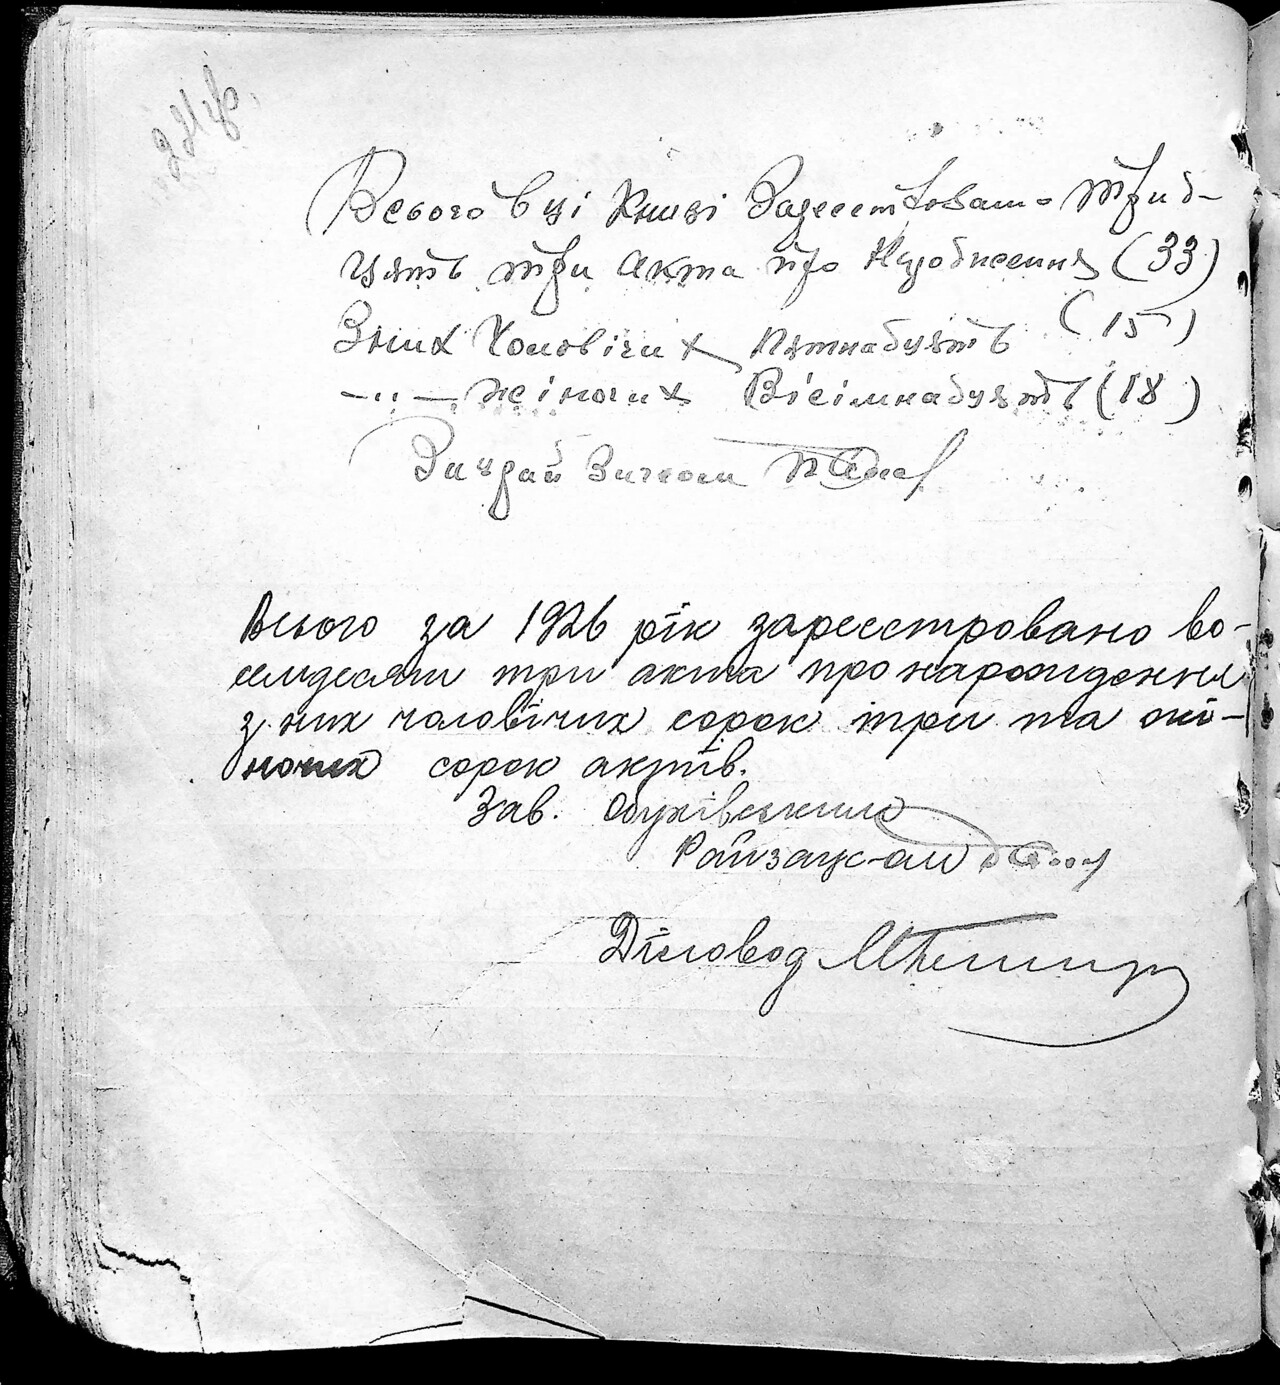 Всього в ці Книзі Зареестровано трид-
цять три Акта про Народження (33)
Зних Чоловічих Пятнадцять (15)
-"- жіночих Вісімнадцять (18)
Зав. рай
Всього за 1926 рік зареєстровано во-
семдесят три акта про нарождення
з них чоловічих сорок три та жі-
ночих сорок актів.
Зав. Обухівським
Райзагс-ом
Діловод